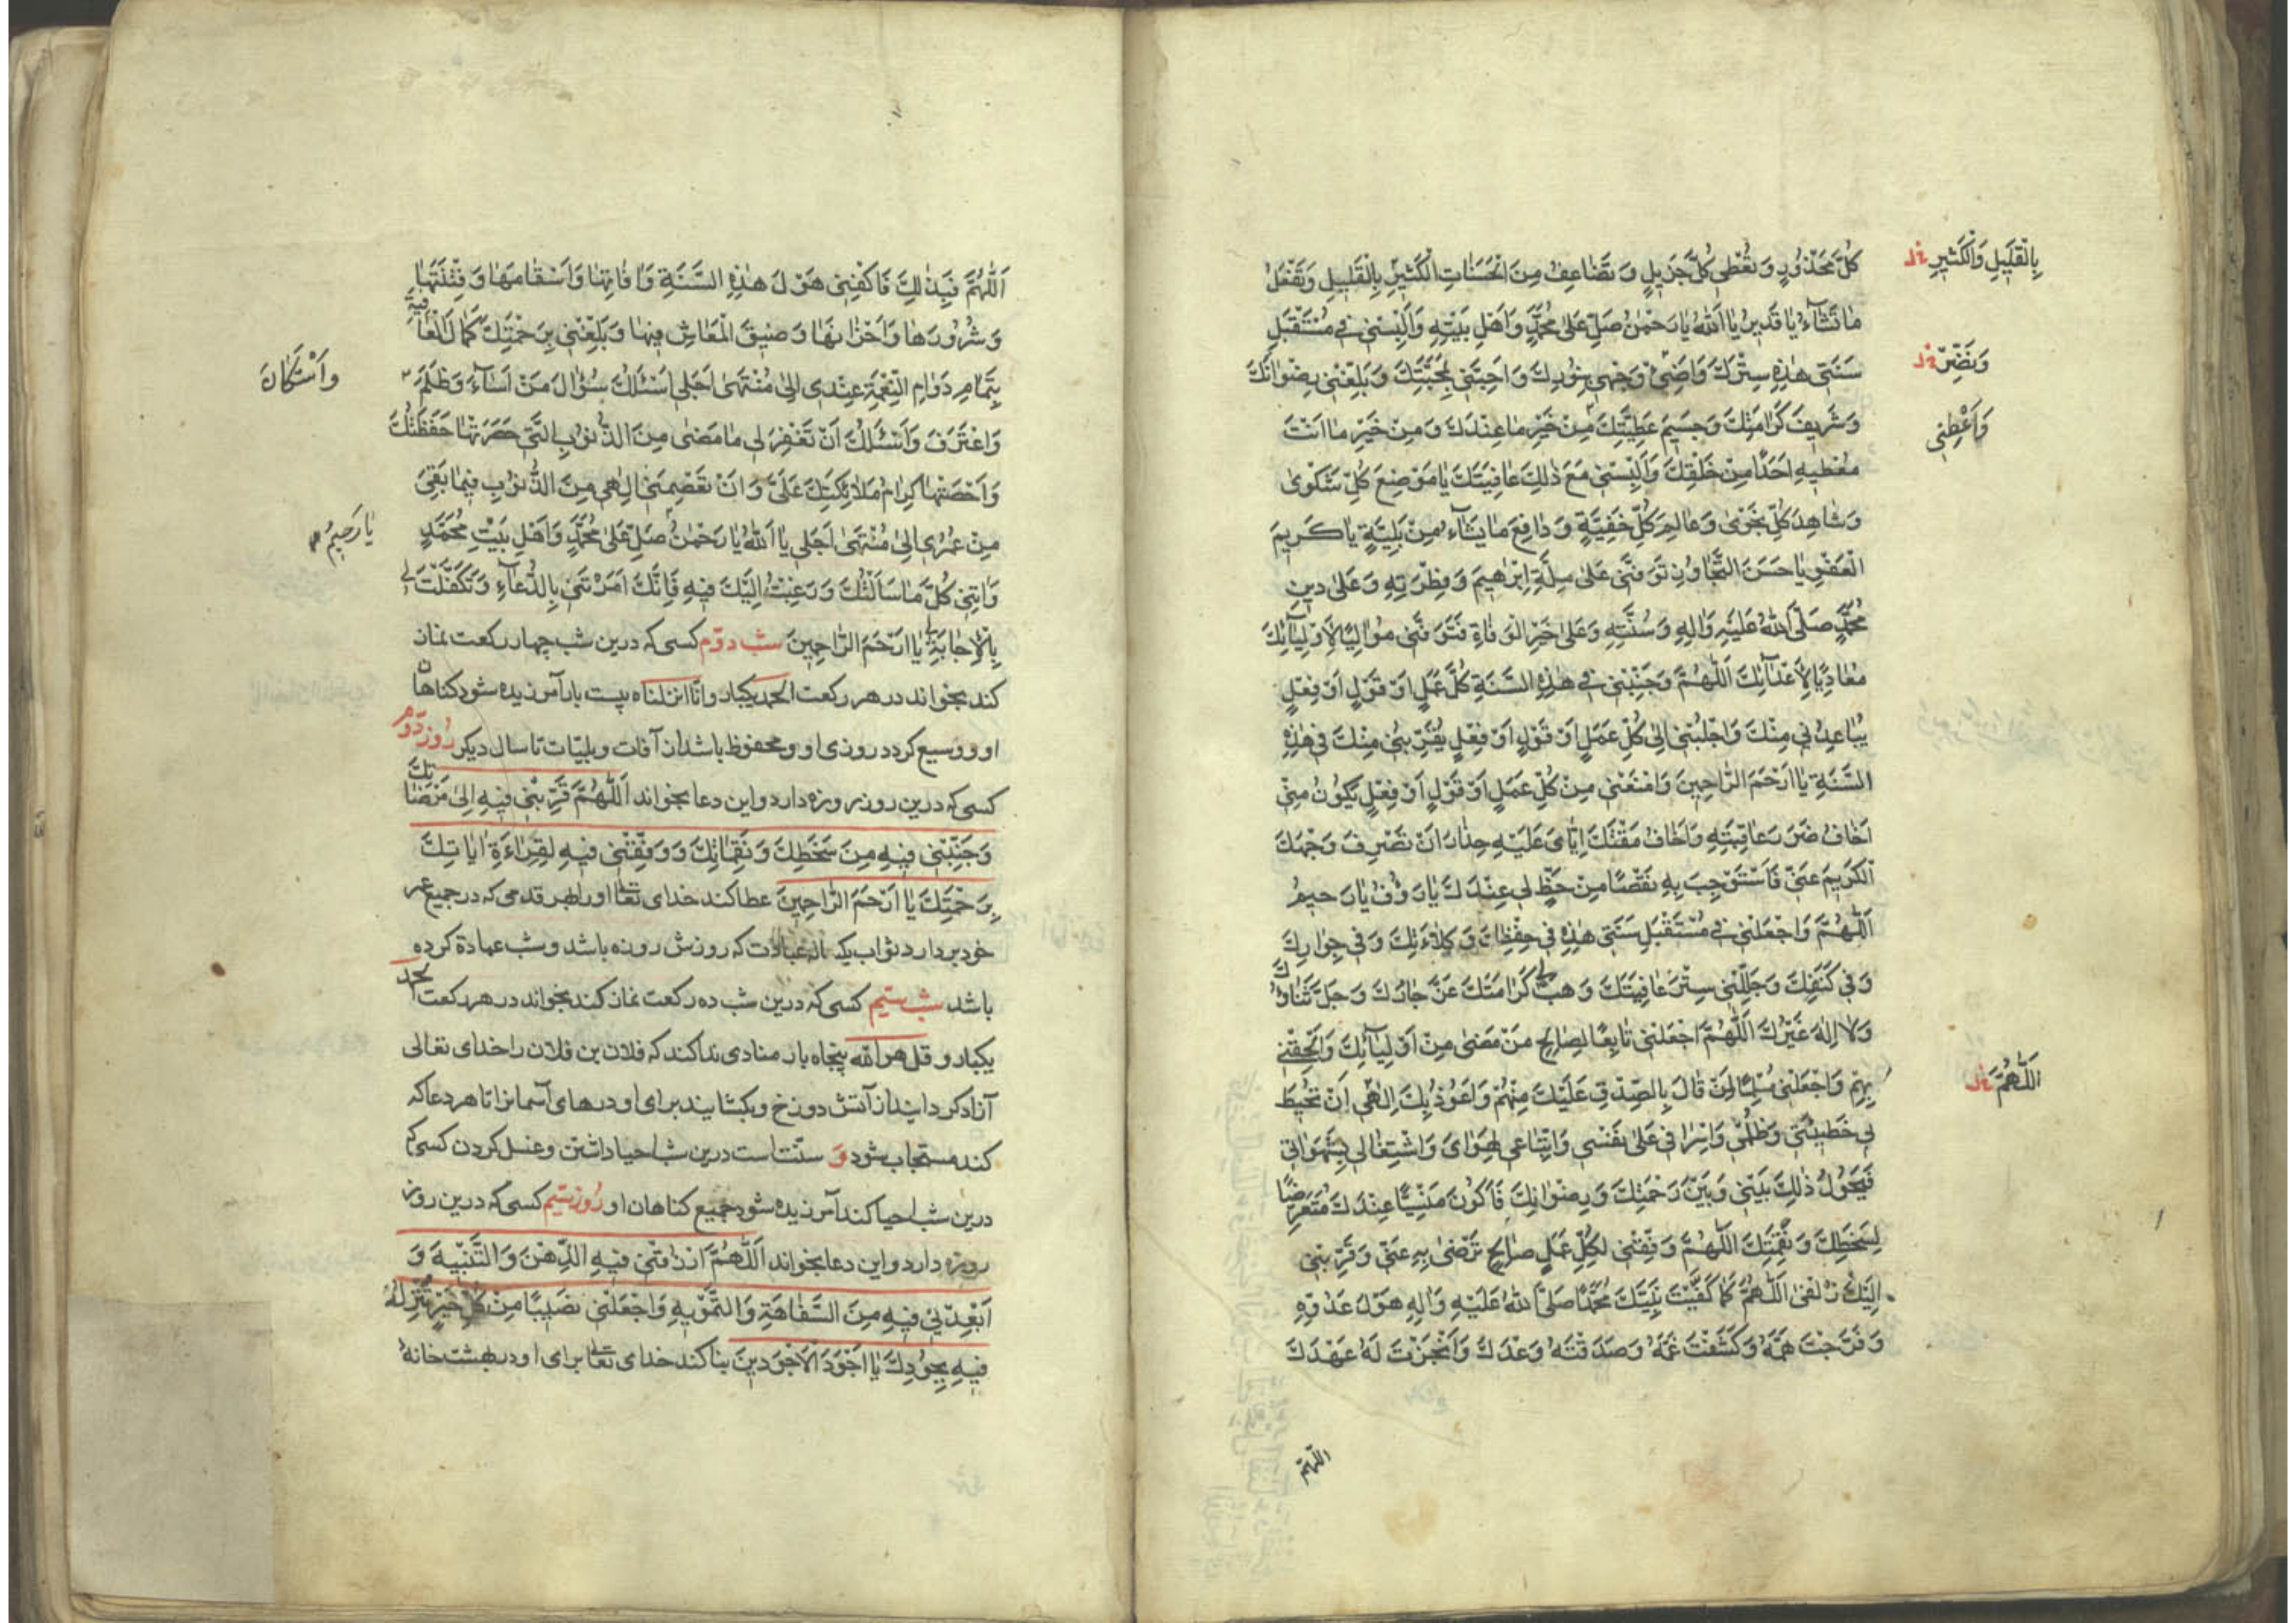 كُلَّ مَحْذُورٍ وَتُعْطِى كُلَّ جَزِيلٍ وَتُضَاعِفُ مِنَ الْحَسَنَاتِ الْكَثِيرَ بِالْقَلِيلِ وَتَفْعَلُ
بِالْقَلِيلِ وَالْكَثِيرِ خل
مَا تَشَآءُ يَا قَدِيرُ يَا اَللّٰهُ يَا رَحْمٰنُ صَلِّ عَلىٰ مُحَمَّدٍ وَاَهْلِ بَيْتِهِ وَاَلْبِسْنِى فِى مُسْتَقْبَلِ
سَنَتِى هٰذِهِ سِتْرَكَ وَاَضِئْ وَجْهِى بِنُورِكَ وَاَحِبَّنِى بِمَحَبَّتِكَ وَبَلِّغْنِى رِضْوَانَكَ
وَنَضِّرْ خل
وَشَرِيفَ كَرَامَتِكَ وَجَسِيمَ عَطِيَّتِكَ مِنْ خَيْرِ مَا عِنْدَكَ وَمِنْ خَيْرِ مَا اَنْتَ
وَاَعْطِنِى
مُعْطِيهِ اَحَدًا مِنْ خَلْقِكَ وَاَلْبِسْنِى مَعَ ذٰلِكَ عَافِيَتَكَ يَا مَوْضِعَ كُلِّ شَكْوىٰ
وَشَاهِدَ كُلِّ نَجْوىٰ وَعَالِمَ كُلِّ خَفِيَّةٍ وَدَافِعَ مَا يَشَآءُ مِنْ بَلِيَّةٍ يَا كَرِيمَ
الْعَفْوِ يَا حَسَنَ التَّجَاوُزِ تَوَفَّنِى عَلىٰ مِلَّةِ اِبْرٰهِيمَ وَفِطْرَتِهِ وَعَلىٰ دِينِ
مُحَمَّدٍ صَلَّى اللّٰهُ عَلَيْهِ وَاٰلِهِ وَسُنَّتِهِ وَعَلىٰ خَيْرِ الْوَفَاةِ فَتَوَفَّنِى مُوَالِيًا لِاَوْلِيَآئِكَ
مُعَادِيًا لِاَعْدَآئِكَ اَللّٰهُمَّ وَجَنِّبْنِى فِى هٰذِهِ السَّنَةِ كُلَّ عَمَلٍ اَوْ قَوْلٍ اَوْ فِعْلٍ
يُبَاعِدُنِى مِنْكَ وَاجْلِبْنِى اِلىٰ كُلِّ عَمَلٍ اَوْ قَوْلٍ اَوْ فِعْلٍ يُقَرِّبُنِى مِنْكَ فِى هٰذِهِ
السَّنَةِ يَا اَرْحَمَ الرَّاحِمِينَ وَامْنَعْنِى مِنْ كُلِّ عَمَلٍ اَوْ قَوْلٍ اَوْ فِعْلٍ يَكُونُ مِنِّى
اَخَافُ ضَرَرَ عَاقِبَتِهِ وَاَخَافُ مَقْتَكَ اِيَّاىَ عَلَيْهِ حِذَارَ اَنْ تَصْرِفَ وَجْهَكَ
الْكَرِيمَ عَنِّى فَاَسْتَوْجِبَ بِهِ نَقْصًا مِنْ حَظٍّ لِى عِنْدَكَ يَا رَؤُفُ يَا رَحِيمُ
اَللّٰهُمَّ وَاجْعَلْنِى فِى مُسْتَقْبَلِ سَنَتِى هٰذِهِ فِى حِفْظِكَ وَكِلَاءَتِكَ وَفِى جِوَارِكَ
وَفِى كَنَفِكَ وَجَلِّلْنِى سِتْرَ عَافِيَتِكَ وَهَبْ لِى كَرَامَتَكَ عَزَّ جَارُكَ وَجَلَّ ثَنَاؤُكَ
وَلَا اِلٰهَ غَيْرُكَ اَللّٰهُمَّ اجْعَلْنِى تَابِعًا لِصَالِحِ مَنْ مَضىٰ مِنْ اَوْلِيَآئِكَ وَاَلْحِقْنِى
بِهِمْ وَاجْعَلْنِى مُسَلِّمًا لِمَنْ قَالَ بِالصِّدْقِ عَلَيْكَ مِنْهُمْ وَاَعُوذُ بِكَ اِلٰهِى اَنْ تُحِيطَ
اَللّٰهُمَّ خل
بِى خَطِيئَتِى وَظُلْمِى وَاِسْرَافِى عَلىٰ نَفْسِى وَاتِّبَاعِى لِهَوَاىَ وَاشْتِغَالِى بِشَهَوَاتِى
فَيَحُولُ ذٰلِكَ بَيْنِى وَبَيْنَ رَحْمَتِكَ وَرِضْوَانِكَ فَاَكُونَ مَنْسِيًّا عِنْدَكَ مُتَعَرِّضًا
لِسَخَطِكَ وَنَقِمَتِكَ اَللّٰهُمَّ وَفِّقْنِى لِكُلِّ عَمَلٍ صَالِحٍ تَرْضىٰ بِهِ عَنِّى وَقَرِّبْنِى
اِلَيْكَ زُلْفىٰ اَللّٰهُمَّ كَمَا كَفَيْتَ نَبِيَّكَ مُحَمَّدًا صَلَّى اللّٰهُ عَلَيْهِ وَاٰلِهِ هَوْلَ عَدُوِّهِ
وَفَرَّجْتَ هَمَّهُ وَكَشَفْتَ غَمَّهُ وَصَدَقْتَهُ وَعْدَكَ وَاَنْجَزْتَ لَهُ عَهْدَكَ
اللّهمّ
اَللّٰهُمَّ فَبِذٰلِكَ فَاكْفِنِى هَوْلَ هٰذِهِ السَّنَةِ وَاٰفَاتِهَا وَاَسْقَامَهَا وَفِتْنَتَهَا
وَشُرُورَهَا وَاَحْزَانَهَا وَضِيقَ الْمَعَاشِ فِيهَا وَبَلِّغْنِى بِرَحْمَتِكَ كَمَالَ الْعَافِيَةِ
بِتَمَامِ دَوَامِ النِّعْمَةِ عِنْدِى اِلىٰ مُنْتَهىٰ اَجَلِى اَسْئَلُكَ سُؤَالَ مَنْ اَسَآءَ وَظَلَمَ
وَاسْتَكَانَ
وَاعْتَرَفَ وَاَسْئَلُكَ اَنْ تَغْفِرَ لِى مَا مَضىٰ مِنَ الذُّنُوبِ الَّتِى حَصَرَتْهَا حَفَظَتُكَ
وَاَحْصَتْهَا كِرَامُ مَلَائِكَتِكَ عَلَىَّ وَاَنْ تَعْصِمَنِى اِلٰهِى مِنَ الذُّنُوبِ فِيمَا بَقِىَ
مِنْ عُمْرِى اِلىٰ مُنْتَهىٰ اَجَلِى يَا اَللّٰهُ يَا رَحْمٰنُ صَلِّ عَلىٰ مُحَمَّدٍ وَاَهْلِ بَيْتِ مُحَمَّدٍ
يَا رَحِيمُ
وَاٰتِنِى كُلَّ مَا سَاَلْتُكَ وَرَغِبْتُ اِلَيْكَ فِيهِ فَاِنَّكَ اَمَرْتَنِى بِالدُّعَآءِ وَتَكَفَّلْتَ لِى
بِالْاِجَابَةِ يَا اَرْحَمَ الرَّاحِمِينَ شب دوّم كسى كه درين شب چهار ركعت نماز
كند بخواند در هر ركعت الحمد يكبار وانّا انزلناه بيست بار آمرزيده شود كناهان
او ووسيع كردد روزى او ومحفوظ باشد از آفات وبليّات تا سال ديكر روز دوّم
كسى كه درين روز روزه دارد واين دعا بخواند اَللّٰهُمَّ قَرِّبْنِى فِيهِ اِلىٰ مَرْضَاتِكَ
وَجَنِّبْنِى فِيهِ مِنْ سَخَطِكَ وَنَقِمَاتِكَ وَوَفِّقْنِى فِيهِ لِقِرَاءَةِ اٰيَاتِكَ
بِرَحْمَتِكَ يَا اَرْحَمَ الرَّاحِمِينَ عطا كند خداى تعا او را بهر قدمى كه در جميع عمر
خود بردارد ثواب يكساله عبادت كه روزش روزه باشد وشب عبادة كرده
باشد شب سيّم كسى كه درين شب ده ركعت نماز كند بخواند در هر ركعت الحمد
يكبار وقل هو الله پنجاه بار منادى ندا كند كه فلان بن فلان را خداى تعالى
آزاد كردانيد از آتش دوزخ وبكشايند براى او درهاى آسمانرا تا هر دعا كه
كند مستجاب شود و سنّت است درين شب احيا داشتن وغسل كردن كسى كه
درين شب احيا كند آمرزيده شود جميع كناهان او روز سيّم كسى كه درين روز
روزه دارد واين دعا بخواند اَللّٰهُمَّ ارْزُقْنِى فِيهِ الذِّهْنَ وَالتَّنْبِيهَ وَ
اَبْعِدْنِى فِيهِ مِنَ السَّفَاهَةِ وَالتَّمْوِيهِ وَاجْعَلْنِى نَصِيبًا مِنْ كُلِّ خَيْرٍ تُنْزِلُهُ
فِيهِ بِجُودِكَ يَا اَجْوَدَ الْاَجْوَدِينَ بنا كند خداى تعا براى او در بهشت خانه